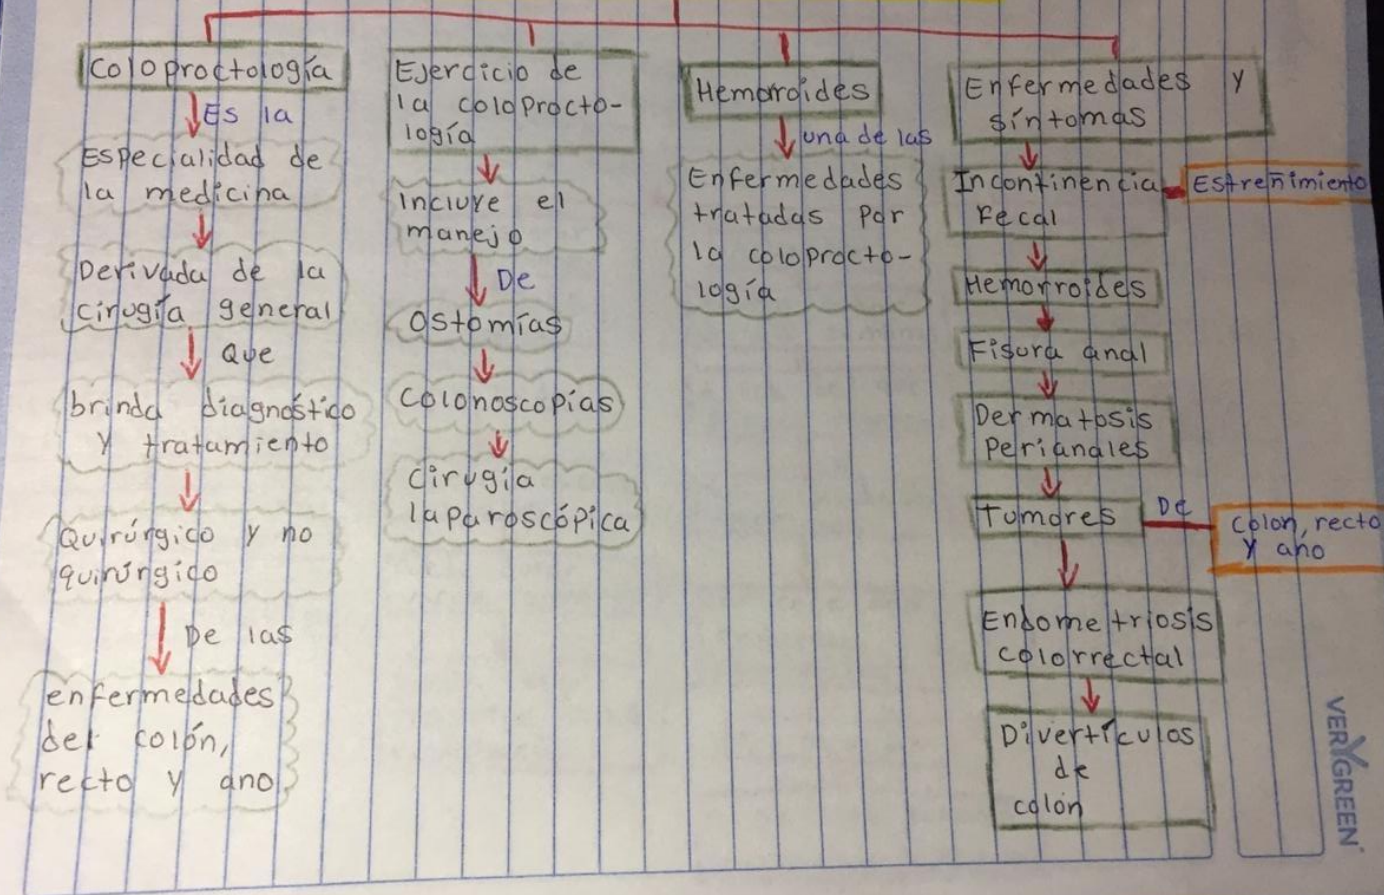 Coloproctología
Es la
Especialidad de
la medicina
Derivada de la
cirugía general
Que
brinda diagnóstico
y tratamiento
Quirúrgico y no
quirúrgico
De las
enfermedades
del colón,
recto y ano
Ejercicio de
la coloprocto-
logía
Incluye el
manejo
De
Ostomías
Colonoscopías
Cirugía
laparoscópica
Hemorroides
una de las
Enfermedades
tratadas por
la coloprocto-
logía
Enfermedades y
síntomas
Incontinencia
Fecal
Estreñimiento
Hemorroides
Fisura anal
Dermatosis
Perianales
Tumores
De
colon, recto
y ano
Endometriosis
colorrectal
Divertículos
de
colón
VERYGREEN